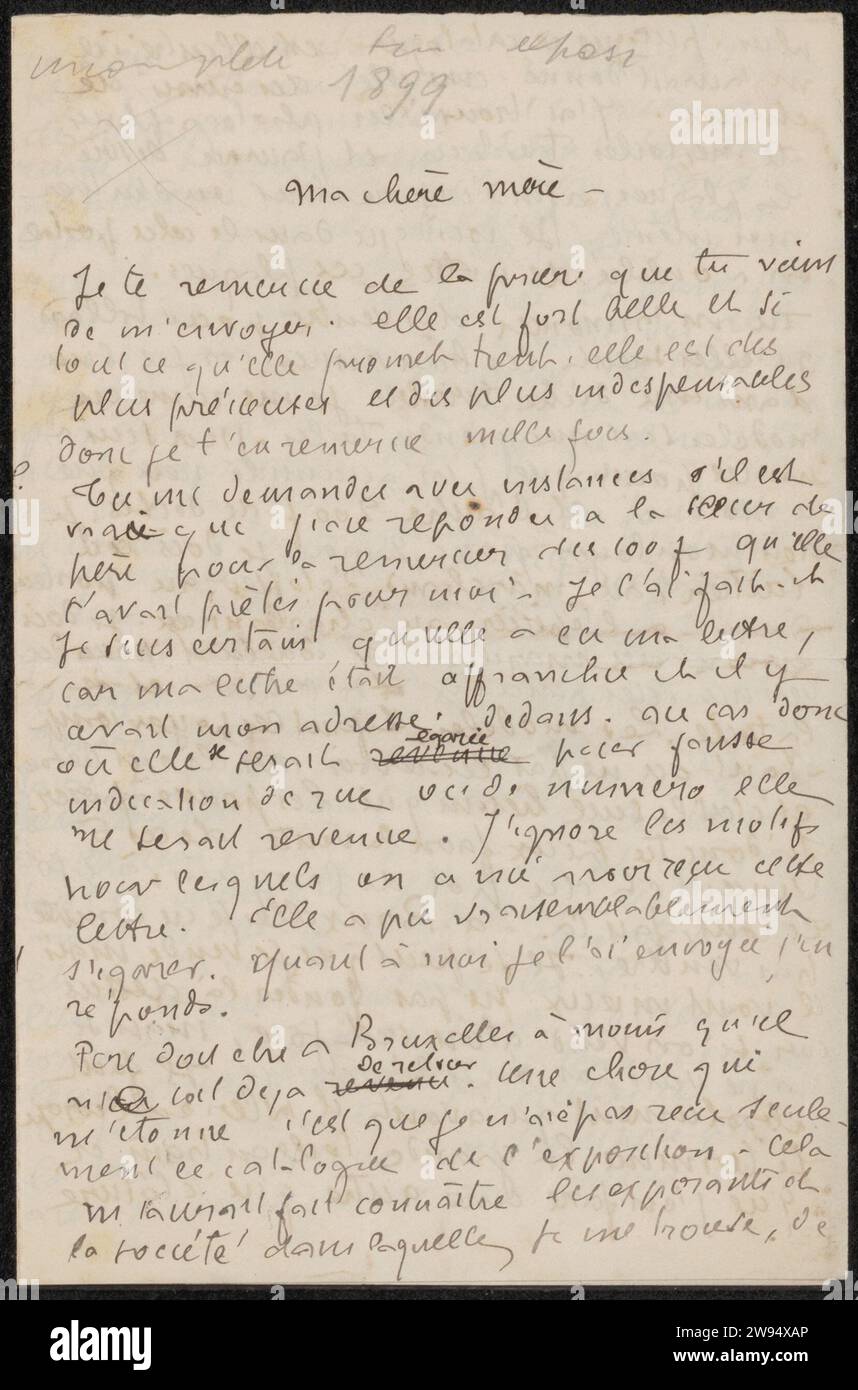 incomplete sur expos
1899
Ma chère mère –
Je te remercie de la que tu viens
de m'envoyer. elle est fort belle et si
tout ce qu'elle promet tient, elle est des
plus précieuses et des plus indespensables
donc je t'en remercie mille fois.
?
Tu me demandes avec instances s'il est
vrai que j'aie répondu a la sœur de
père pour la remercier des 100 f qu'elle
t'avait prêtés pour moi – Je l'ai fait et
je suis certain qu'elle a eu ma lettre,
car ma lettre était affranchie et il y
avait mon adresse dedans. au cas donc
égarée
où elle se serait revenue pour fausse
indication de rue ou de numero elle
me serait revenue. J'ignore les motifs
pour lesquels on a nié avoir reçu cette
lettre. Elle a pu vraisemblablement
s'égarer. Quant à moi je l'ai envoyée j'en
réponds.
Père doit etre a Bruxelles à moins qu'il
de retour
n'en soit deja revenu. Une chose qui
m'étonne c'est que je n'aie pas recu seule-
ment le catalogue de l'exposition – cela
m'aurait fait connaître les exposants et
la société dans laquelle je me trouve, de
alamy
Image ID: 2W94XAP
www.alamy.com